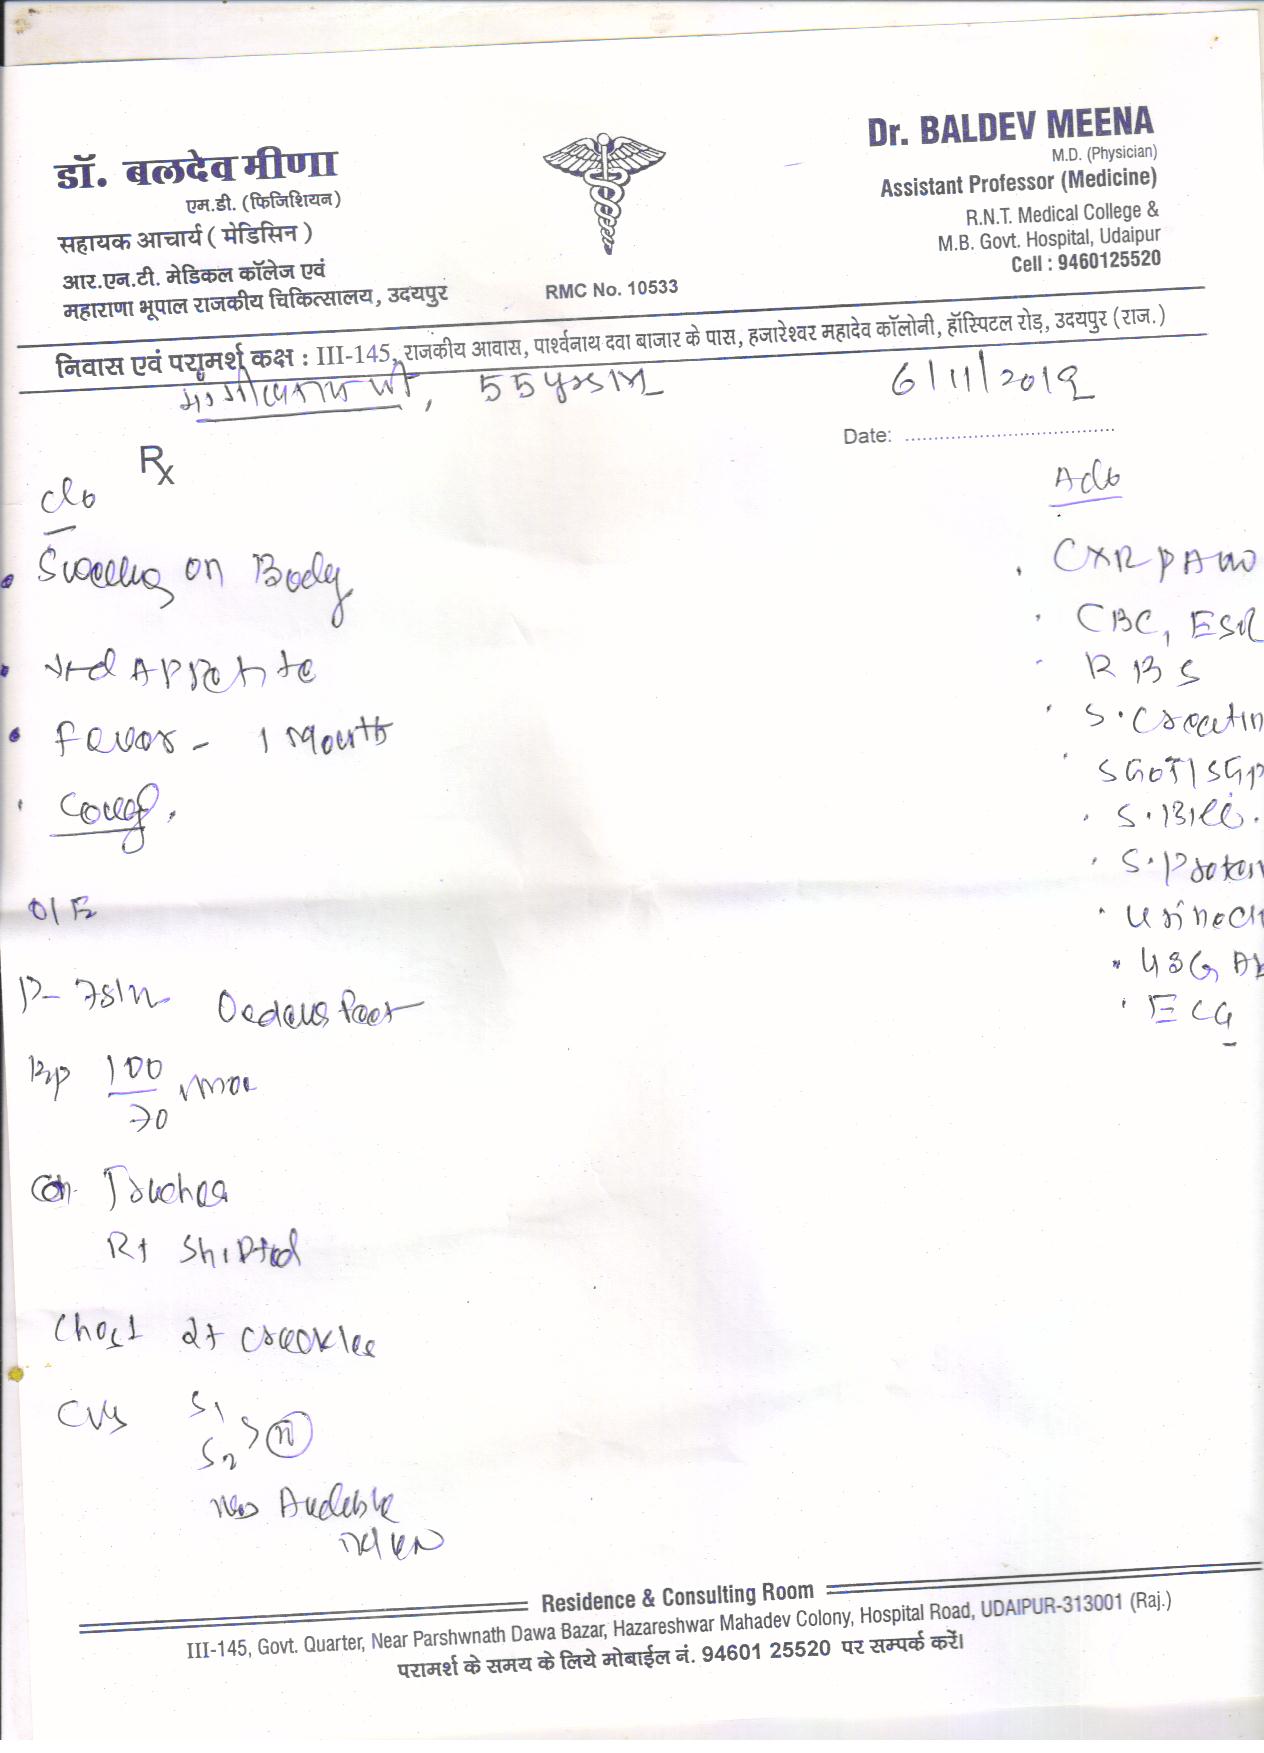 डॉ. बलदेव मीणा
एम.डी. (फिजिशियन)
सहायक आचार्य ( मेडिसिन )
आर.एन.टी. मेडिकल कॉलेज एवं
महाराणा भूपाल राजकीय चिकित्सालय, उदयपुर
RMC No. 10533
Dr. BALDEV MEENA
M.D. (Physician)
Assistant Professor (Medicine)
R.N.T. Medical College &
M.B. Govt. Hospital, Udaipur
Cell : 9460125520
निवास एवं परामर्श कक्ष : III-145, राजकीय आवास, पार्श्वनाथ दवा बाजार के पास, हजारेश्वर महादेव कॉलोनी, हॉस्पिटल रोड़, उदयपुर (राज.)
55 yrs/m
6/11/2019
Date:
Rx
c/o
Swelling on Body
Appetite
Fever - 1 Month
Cough.
O/E
P- 78/m
Bp 100/70
Trachea
Rt Shifted
Chest crackles
CVS S1 S2 > n
Audible
Adv
CXR PA
CBC, ESR
RBS
S. Creatin
SGOT/SGP
S. Bili.
S. Protein
USG, Ab
ECG
Residence & Consulting Room
III-145, Govt. Quarter, Near Parshwnath Dawa Bazar, Hazareshwar Mahadev Colony, Hospital Road, UDAIPUR-313001 (Raj.)
परामर्श के समय के लिये मोबाईल नं. 94601 25520 पर सम्पर्क करें।